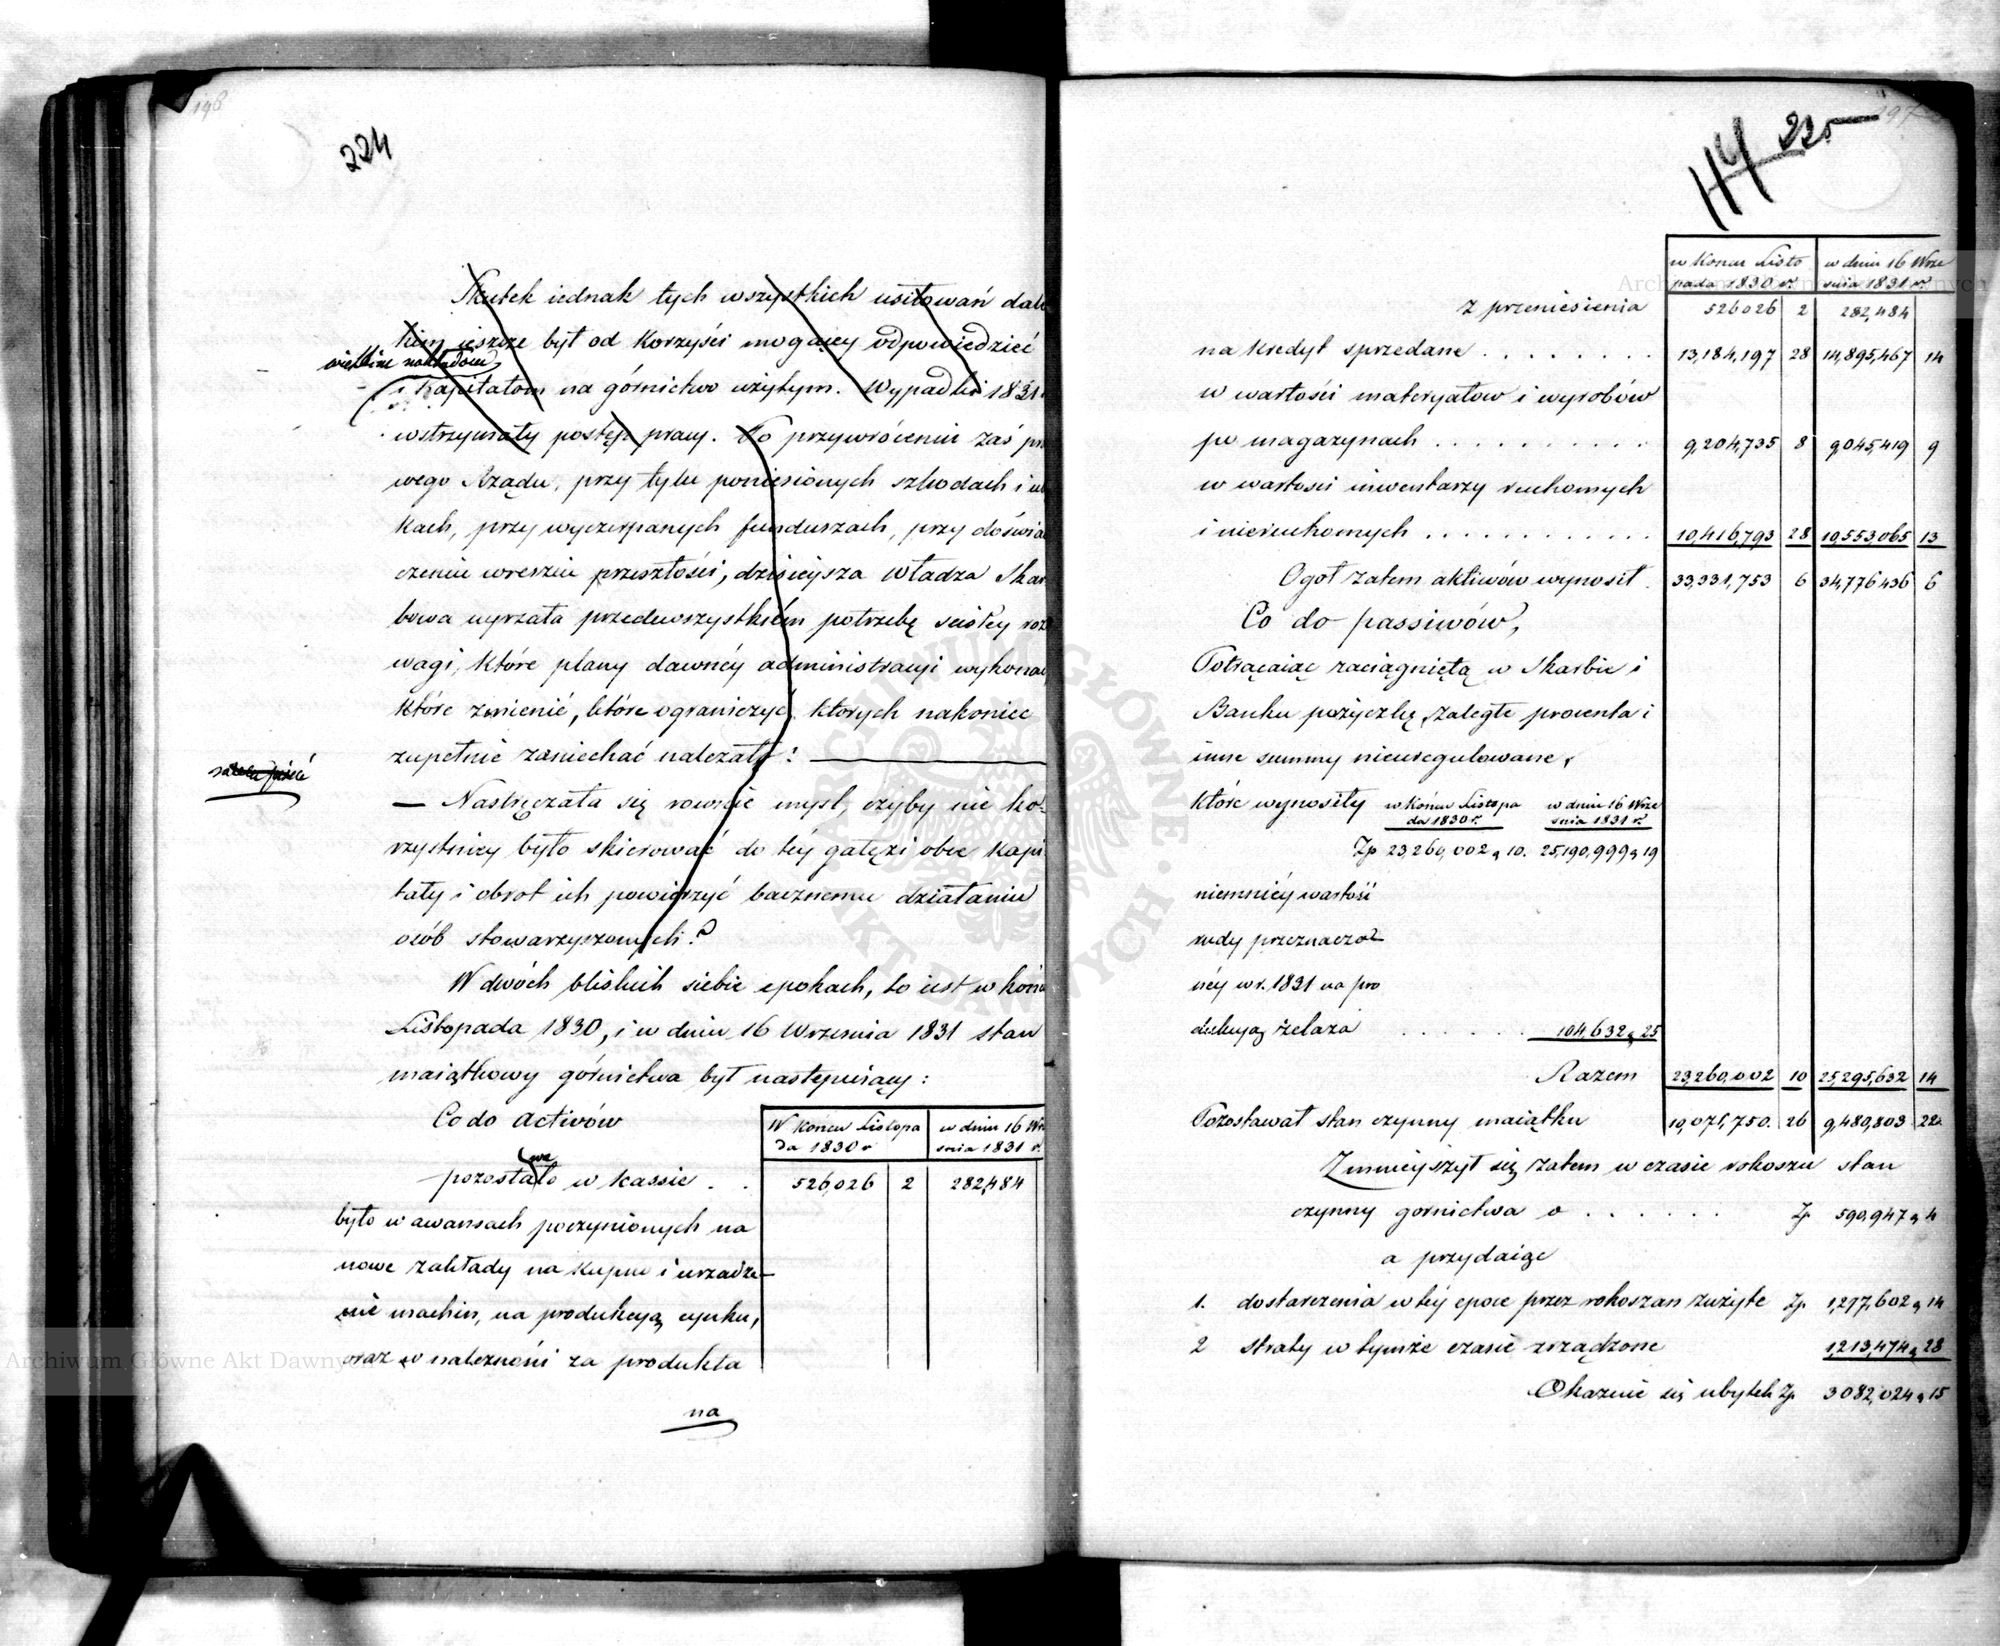 198
224
Skutek iednak tych wszystkich usiłowań dale
kim ieszcze był od korzyści mogącey odpowiedzieć
wielkim nakładom
i kapitałom na górnictwo użytym. Wypadki 1831
wstrzymały postęp pracy. Po przywróceniu zaś pra
wego Rządu, przy tylu poniesionych szkodach i u
kach, przy wyczerpanych funduszach, przy doświad
czeniu wreszcie przeszłości, dzisieysza Władza Skar
bowa uyrzała przedewszystkiém potrzebę scisłey roz
wagi, które plany dawnéy administracyi wykonać,
które zmienić, które ograniczyć, których nakoniec
zupełnie zaniechać należało:
— Nastręczała się rownie mysl, czyby nie ko-
rzystniey było skierować do téy gałęzi obce kapi
tały i obrot ich powierzyć bacznemu działaniu
osób stowarzyszonych?
W dwóch bliskich siebie epokach, to iest w końcu
Listopada 1830, i w dniu 16 Września 1831 stan
maiątkowy górnictwa był następuiący:
Co do activów
W końcu Listopa w dniu 16 Wrze
da 1830 r śnia 1831 r.
pozostało w kassie . . 526,026 2 282,484
było w awansach poczynionych na
nowe zakłady na kupno i urządze-
nie machin, na produkcyą cynku,
oraz w należności za produkta
na
197
114 225
w Koncu Listo w dniu 16 Wrze
pada 1830 r. śnia 1831 r.
z przeniesienia 526026 2 282,484
na kredyt sprzedane . . . . . . . . 13,184,197 28 14,895,467 14
w wartości materyałow i wyrobów
po magazynach . . . . . . . . . . 9,204,735 8 9,045,419 9
w wartosci inwentarzy ruchomych
i nieruchomych . . . . . . . . . . . . 10,416,793 28 10,553,065 13
Ogół zatem aktiwów wynosił . 33,331,753 6 34,776,436 6
Co do passiwów,
Potrącaiąc zaciągniętą w Skarbie i
Banku pożyczkę, zaległe procenta i
inne summy nieuregulowane,
które wynosiły w końcu Listopa w dniu 16 Wrze
da 1830 r. śnia 1831 r.
Zp 23,260,002 g 10. 25,190,999 g 19
niemniéy wartość
rudy przeznaczo-
néy w r. 1831 na pro
dukcyą żelaza . . . . . . 104,632 g 25
Razem 23,260,002 10 25,295,632 14
Pozostawał stan czynny maiątku 10,071,750. 26 9,480,803 22
Zmnieyszył się zatem w czasie rokoszu stan
czynny gornictwa o . . . . . . Zp. 590,947 g 4
a przydaiąc
1. dostarczenia w téy epoce przez rokoszan zużyte Zp. 1,277,602 g 14
2 straty w tymże czasie zrządzone 1,213,474 g 28
Okazuie się ubytek Zp. 3082,024 g 15
Archiwum Główne Akt Dawnych
ARCHIWUM GŁÓWNE AKT DAWNYCH